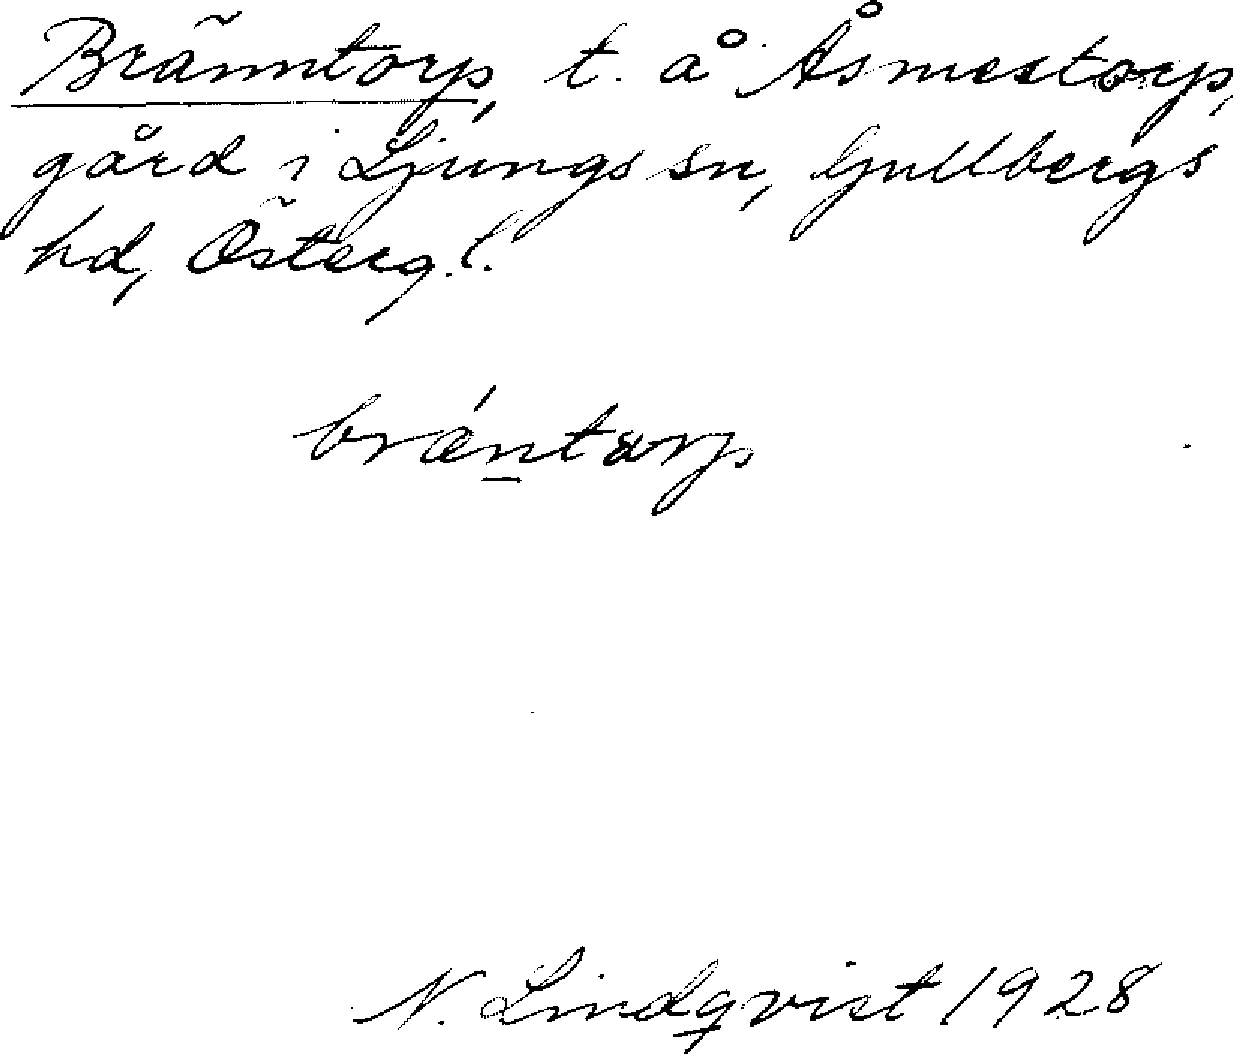 Bränntorp, t. å Åsmestorp,
gård i Ljungs sn, Gullbergs
hd, Österg. l.
brǽntarp
N. Lindqvist 1928